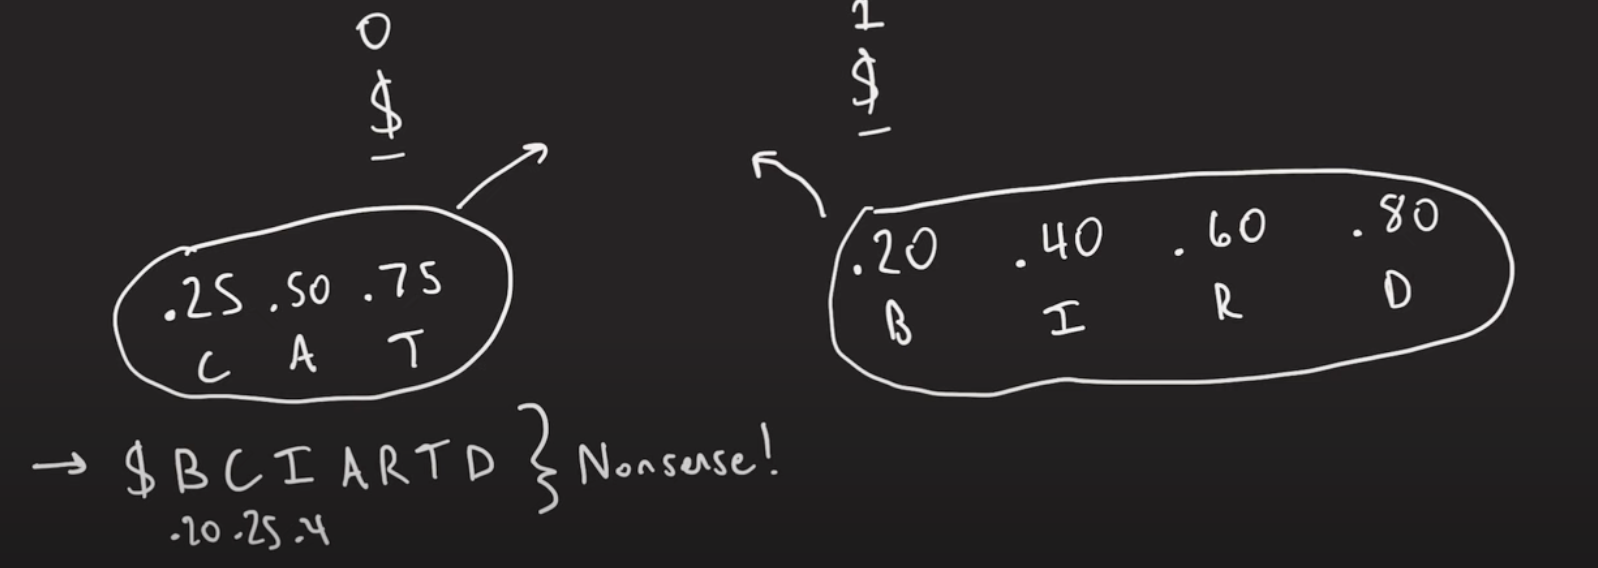 0 1
$ $
.25 .50 .75
C A T
.20 .40 .60 .80
B I R D
→ $ B C I A R T D } Nonsense!
.20 .25 .4